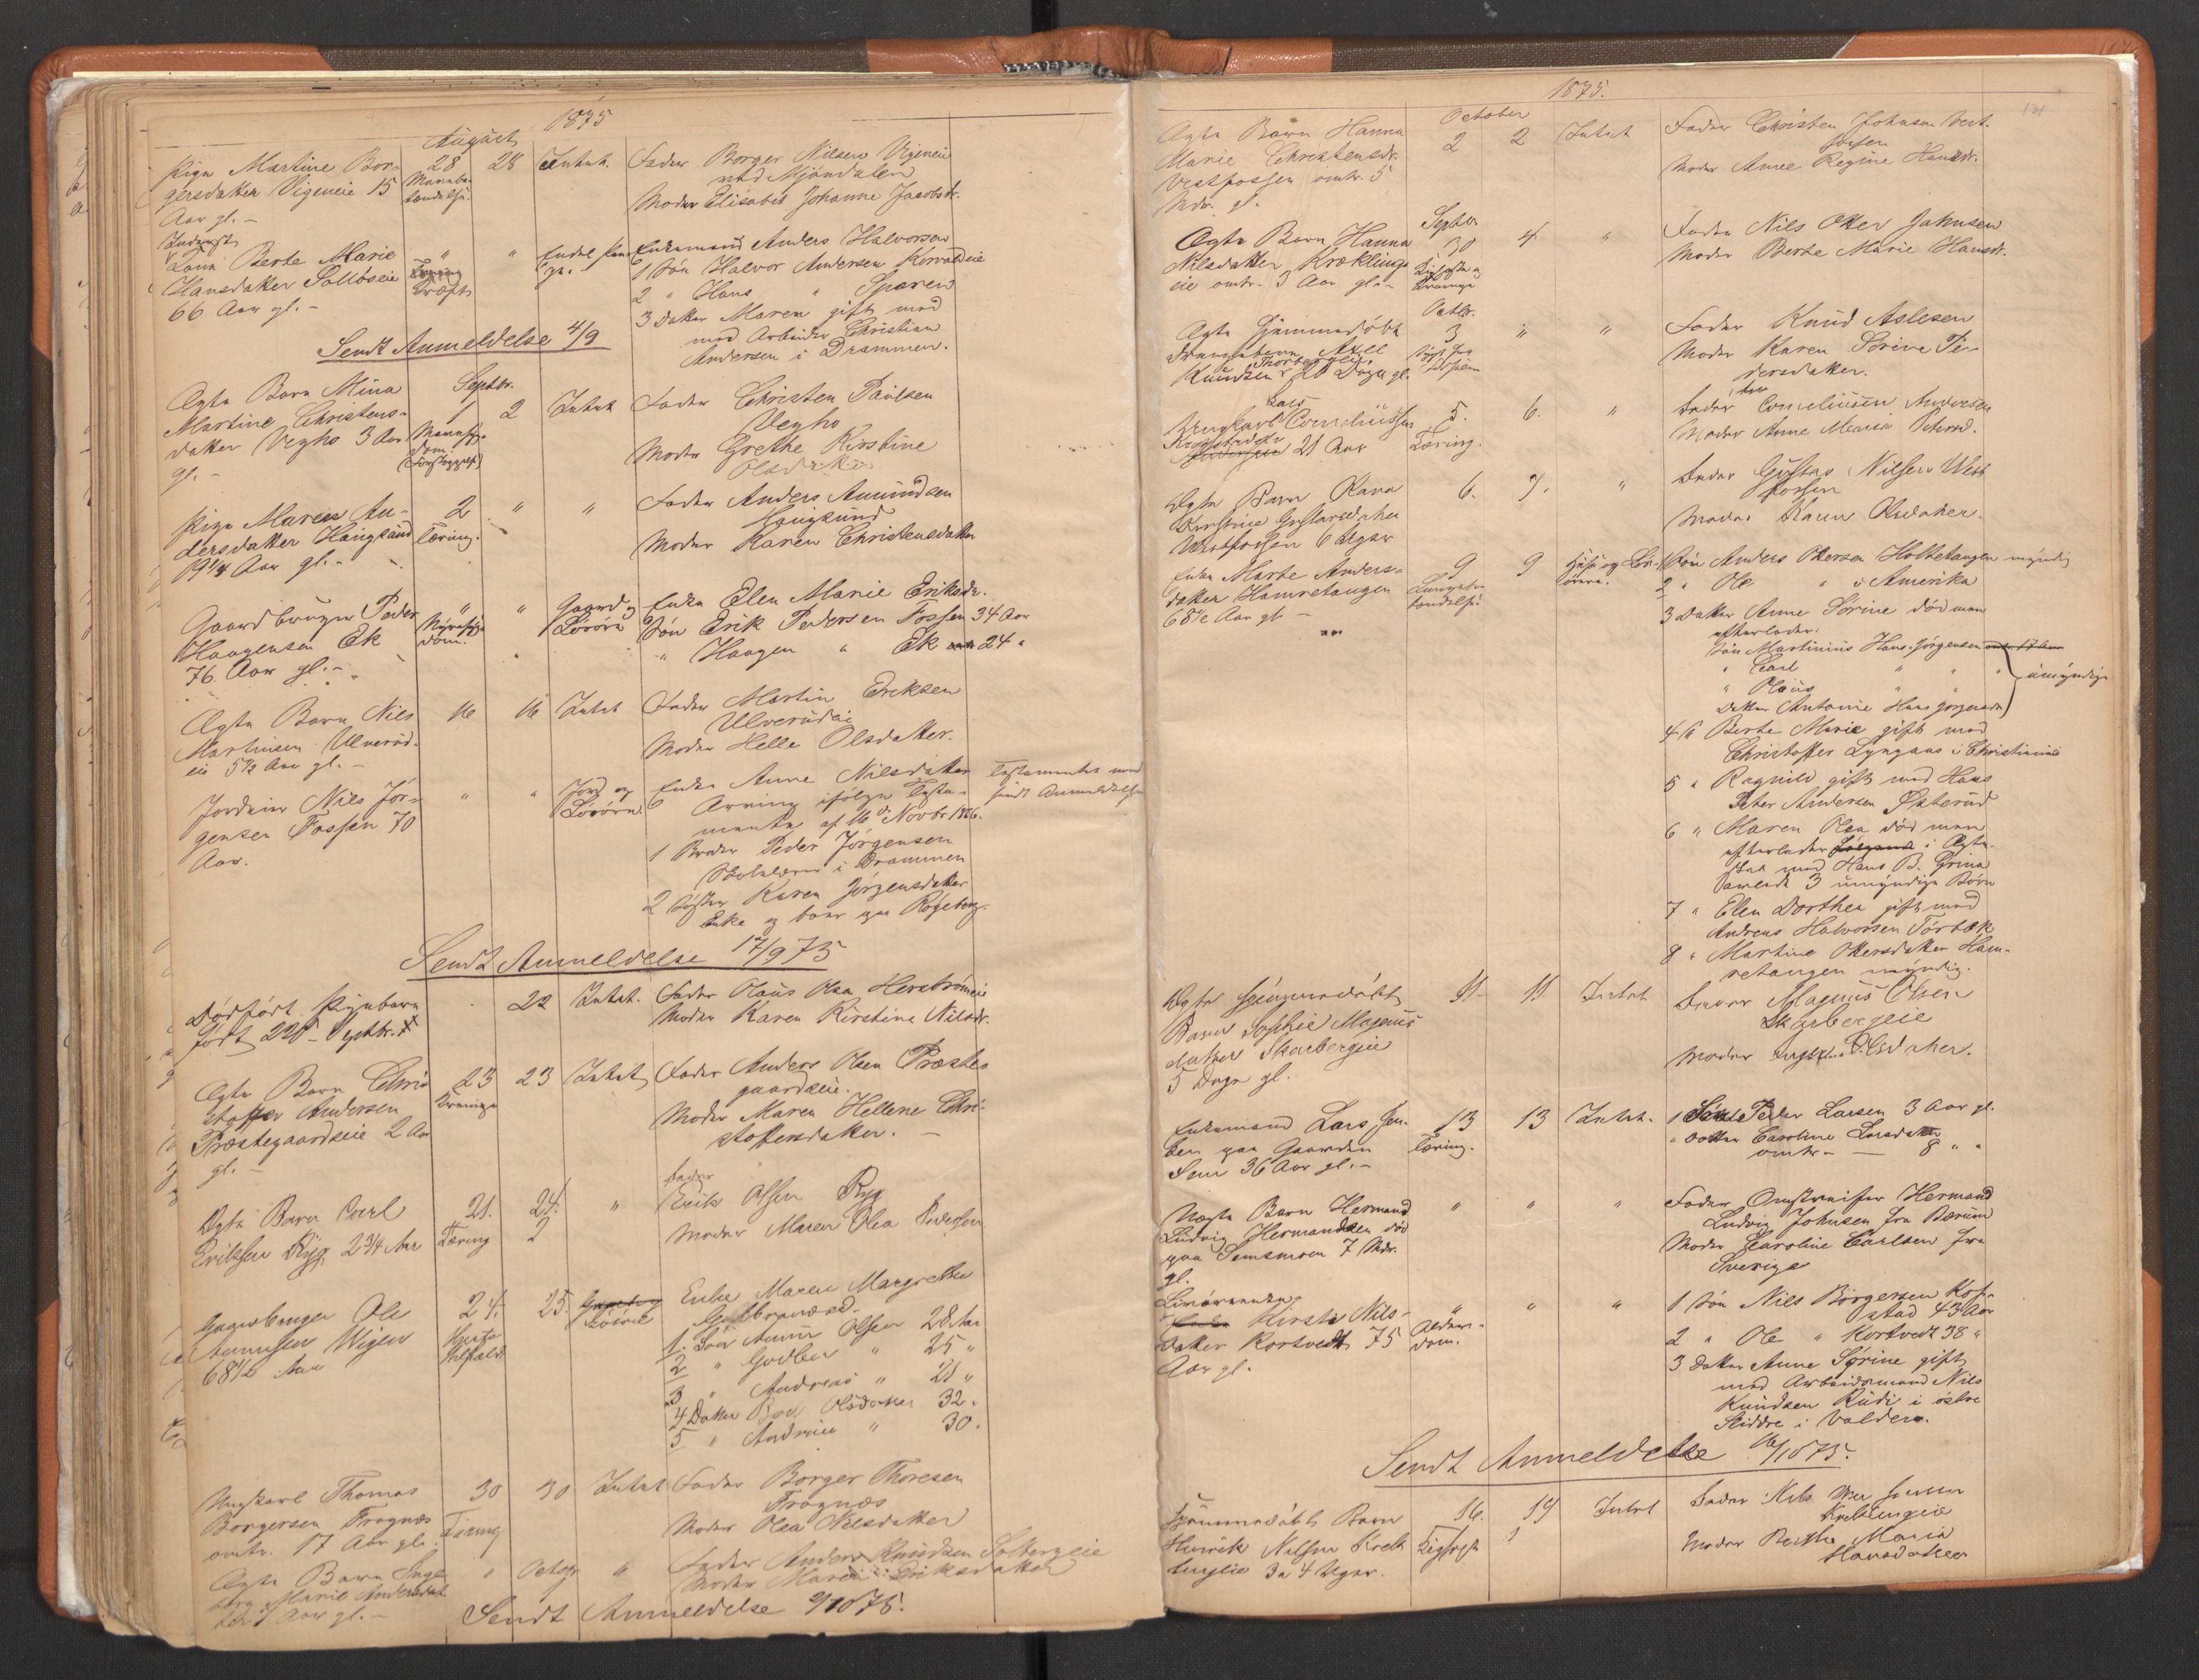 1875
August
Pige Martine Bor-
gersdatter Vigeneie 15
Aar gl. -
28
28
Intet.
Fader Borger Nilsen Vigeneie
ved Mjøndalen
Moder Elisabet Johanne Jacobsdr.
Berte Marie
Hansdatter
66 Aar gl. -
"
Tæring
"
Enkemand Anders Halvorsen
1 Søn Halvor Andersen
2 " Hans "
3 Datter Maren gift med
med Arbeider Christian
Andersen i Drammen.
Sendt Anmeldelse 4/9
Septbr.
Ægte Barn Mina
Martine Christens-
datter Vegho 3 Aar
gl. -
1
2
Intet
Fader Christen Paulsen
Vegho
Moder Grethe Kirstine
Olsdatter
Pige Maren An-
dersdatter Hougsund
19 1/4 Aar gl. -
2
Tæring.
"
"
Fader Anders Amundsen
Hougsund
Moder Karen Christensdatter
Gaardbruger Peder
Haagensen Ek
76 Aar gl. -
"
"
Gaard og
Løsøre
Enke Elen Marie Eriksdr.
Søn Erik Pedersen Fossen 34 Aar
" Haagen " Ek 24 "
Ægte Barn Nils
Martinsen Ulverud-
eie 5 1/2 Aar gl. -
16
16
Intet
Fader Martin Eriksen
Ulverudeie
Moder Helle Olsdatter.
Jordeier Nils Jør-
gensen Fossen 70
Aar.
"
"
Jord og
Løsøre
Enke Anne Nilsdatter
Arving ifølge Testa-
mente af 16 d. Novbr. 1866.
1 Broder Peder Jørgensen
Skolelærer i Drammen
2 Søster Karen Jørgensdatter
Enke og boer paa Røgeberg.
Testamentet med
sendt Anmeldelsen
Sendt Anmeldelse 17/9 75
Dødfødt Pigebarn
født 22d Septbr.
22
Intet.
Fader Olaus Olsen
Moder Karen Kirstine Nilsdr.
Ægte Barn Chri-
stoffer Andersen
Præstegaardseie 2 Aar
gl. -
23
23
Intet
Fader Anders Olsen Præste-
gaardseie.
Moder Maren Hellene Chri-
stoffersdatter. -
Ægte Barn Carl
Eriksen Ryg 2 3/4 Aar
21.
Tæring
24.
"
Fader
Erik Olsen Ryg
Moder Maren Olea
Gaardbruger Ole
68 1/2 Aar
24.
25.
Løsøre
Enke Maren Margrethe
1. Søn Olsen 28 Aar
2 " " 25 "
3 " Andreas " 21 "
4 Datter Olsdatter 32.
5 " " 30.
Ungkarl Thomas
Borgersen Frognæs
omtr. 17 Aar gl.
30
Tæring
30
Intet
Fader Borger Thoresen
Frognæs
Moder Olea Nilsdatter
Ægte Barn Inge-
borg Marie Andersdat-
ter Aar gl. -
"
October
"
Fader Anders Knudsen Solbergeie
Moder Maren Eriksdatter
Sendt Anmeldelse 2/10 75.
1875.
131
October
Ægte Barn Hanna
Marie Christensdr.
Vestfossen omtr. 5
Mdr. gl.
2
2
Intet
Fader Christen Johnsen Vest-
fossen
Moder Anne Regine Hansdr.
Ægte Barn Hanna
Nilsdatter Kræklings-
eie omtr. 3 Aar gl. -
Septbr.
30
4
"
Fader Nils Oker Jahnsen
Moder Berte Marie Hansdr.
Ægte Hjemmedøbt
Drengebarn Axel
Knudsen 20 Dage gl.
Octbr.
3
"
"
Fader Knud Aslesen
Moder Karen Sorine Pe-
dersdatter.
Lars
Ungkarl Corneliussen
21 Aar
5.
Tæring.
6.
"
Fader Corneliusen
Moder Anne Maria
Ægte Barn
Kirstine Gustavsdatter
Westfossen 6 Uger
6.
7.
"
Fader Gustav Nilsen West-
fossen
Moder Olsdatter.
Enke Marte Anders-
datter Hamretangen
68 1/2 Aar gl. -
9
9
1 Søn Anders Okersen Holtetangen myndig
2 " Ole " i Amerika
3 Datter Anne Sørine død men
efterlader.
Søn Martinius Hans Jørgensen
" Carl " " "
" Olaus " "
Datter Antonie Hans Jørgensdr.
umyndige
4 " Berte Marie gift med
Christoffer Lyngaas i Christiania
5 " Ragnild gift med Hans
Peter Andersen Østerud
6 " Maren Olea død men
efterlader i Ægte-
skab med Hans B. Grina
3 umyndige Børn
7 " Elen Dorthea gift med
Andreas Halvorsen Torbæk
8 " Martine Okersdatter Ham-
retangen myndig.
Ægte Hjemmedøbt
Barn Sophie Magnus-
datter Skarbergeie
5 Dage gl.
11
11
Intet
Fader Magnus Olsen
Skarbergeie
Moder Olsdatter.
Enkemand Lars Jen-
sen paa Gaarden
Sem 36 Aar gl. -
13
Tæring.
13
Intet.
1 Søn Peder Larsen 3 Aar gl.
" Datter Caroline Larsdatter
omtr. - 8 " "
Uægte Barn Hermand
Ludvig Hermandsen død
paa Semsmoen 7 Mdr.
gl.
"
"
"
Fader Omstreifer Hermand
Ludvig Johnsen fra Bærum
Moder Karoline Carlsen fra
Sverige
Kirsti Nils-
datter Kortvedt 75
Aar gl.
"
Alder-
dom.
"
"
1 Søn Nils Børgersen Kop-
stad 43 Aar
2 " Ole " Kortvedt 38 "
3 Datter Anne Sørine gift
med Arbeidsmand Nils
Knudsen Rudi i østre
Slidre i Valders.
Sendt Anmeldelse 16/10 75.
Hjemmedøbt Barn
Henrik Nilsen Kræk-
lingeie 3 a 4 Uger.
16.
19
Intet
Fader Nils Oker Jansen
Kræklingeie
Moder Berthe Maria
Hansdatter